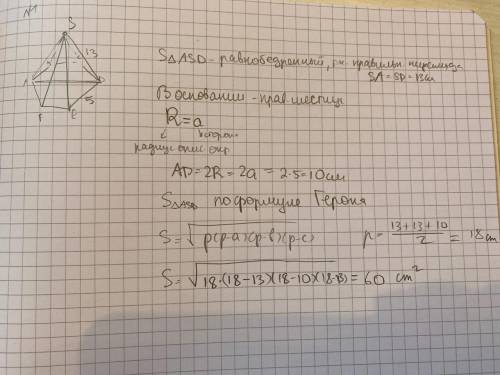 N1
S
13
5
A
D
F
E
S△ASD - равнобедренный, т.к. правильн. пирамида
SA = SD = 13см
В основании - прав. шестиуг
R = a
сторона
радиус опис окр
AD = 2R = 2a = 2·5 = 10 см
S△ASD по формуле Герона
S = √p(p-a)(p-b)(p-c)
p = (13+13+10)/2 = 18 см
S = √18·(18-13)(18-10)(18-13) = 60 см²